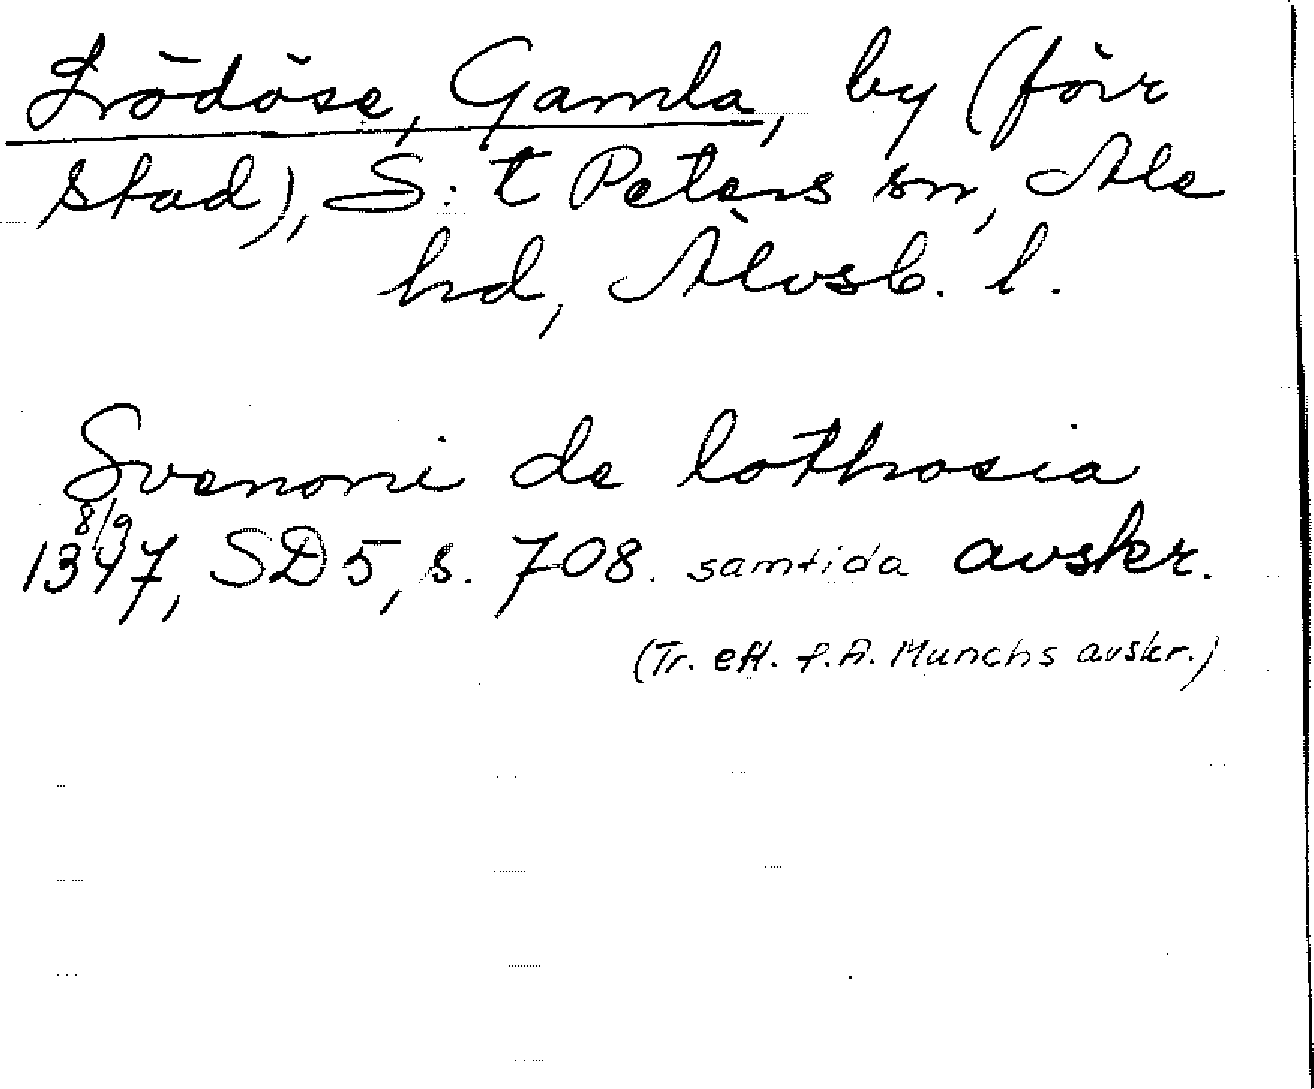 Lrödöse, Gamla, by (förr
stad), S:t Peters sn, Ale
hd, Älvsb. l.
Svenoni de lothosia
8/9
1347, SD5, s. 708. samtida avskr.
(Tr. eft. P.A. Munchs avskr.)